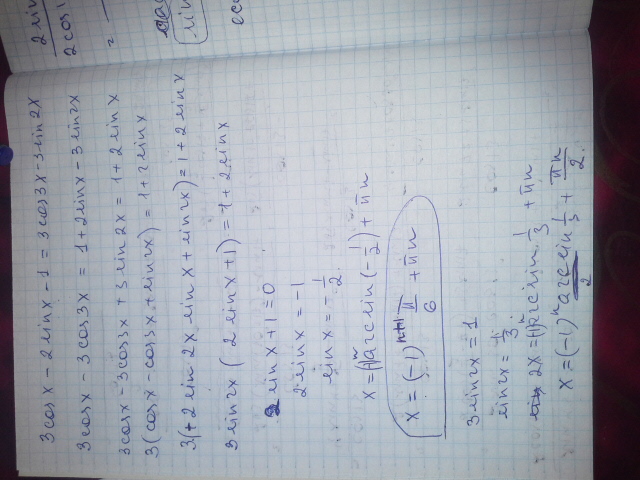 2 sin
2 cos
=
sin
3cosx - 2sinx - 1 = 3cos3x - 3sin2x
3cosx - 3cos3x = 1 + 2sinx - 3sin2x
3cosx - 3cos3x + 3sin2x = 1 + 2sinx
3(cosx - cos3x + sin2x) = 1 + 2sinx
3(+2sin2x sinx + sin2x) = 1 + 2sinx
3sin2x(2sinx + 1) = 1 + 2sinx
2sinx + 1 = 0
2sinx = -1
sinx = -1/2.
x = (-1)^n arcsin(-1/2) + πn
x = (-1)^{n+1} π/6 + πn
3sin2x = 1
sin2x = 1/3.
2x = (-1)^n arcsin 1/3 + πn
x = (-1)^n arcsin 1/3 / 2 + πn/2.